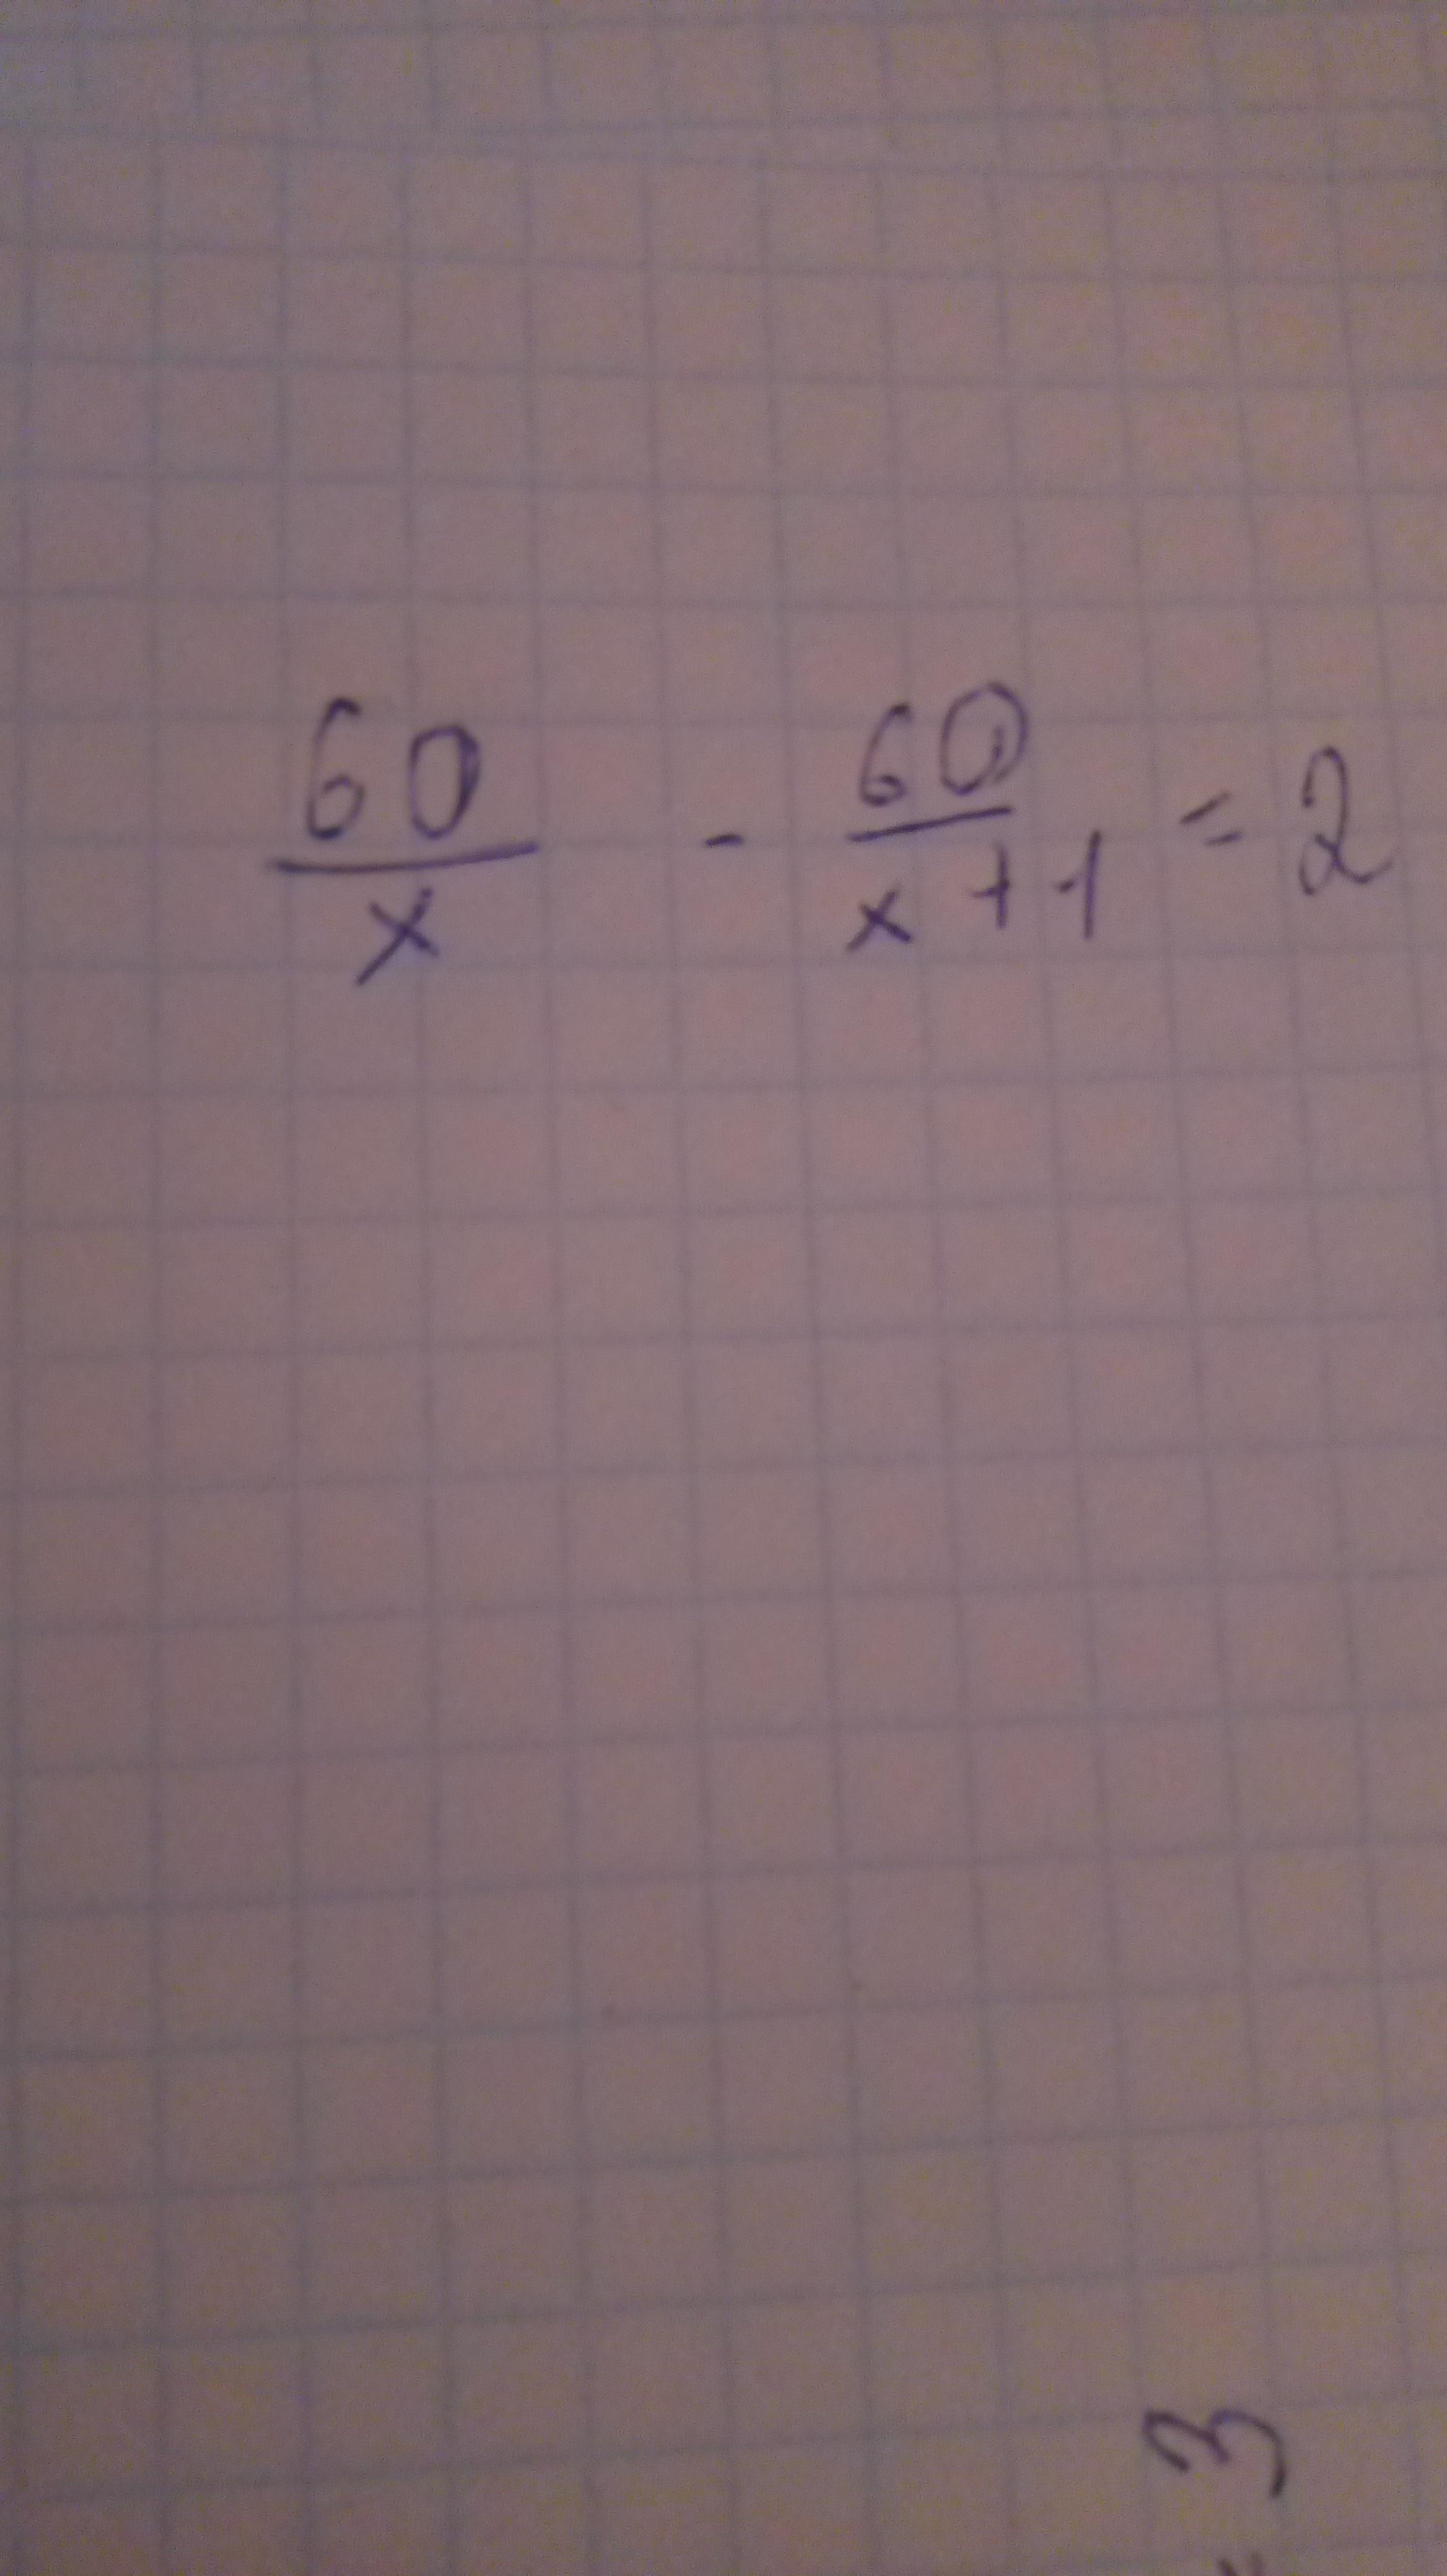 60/x - 60/x+1 = 2